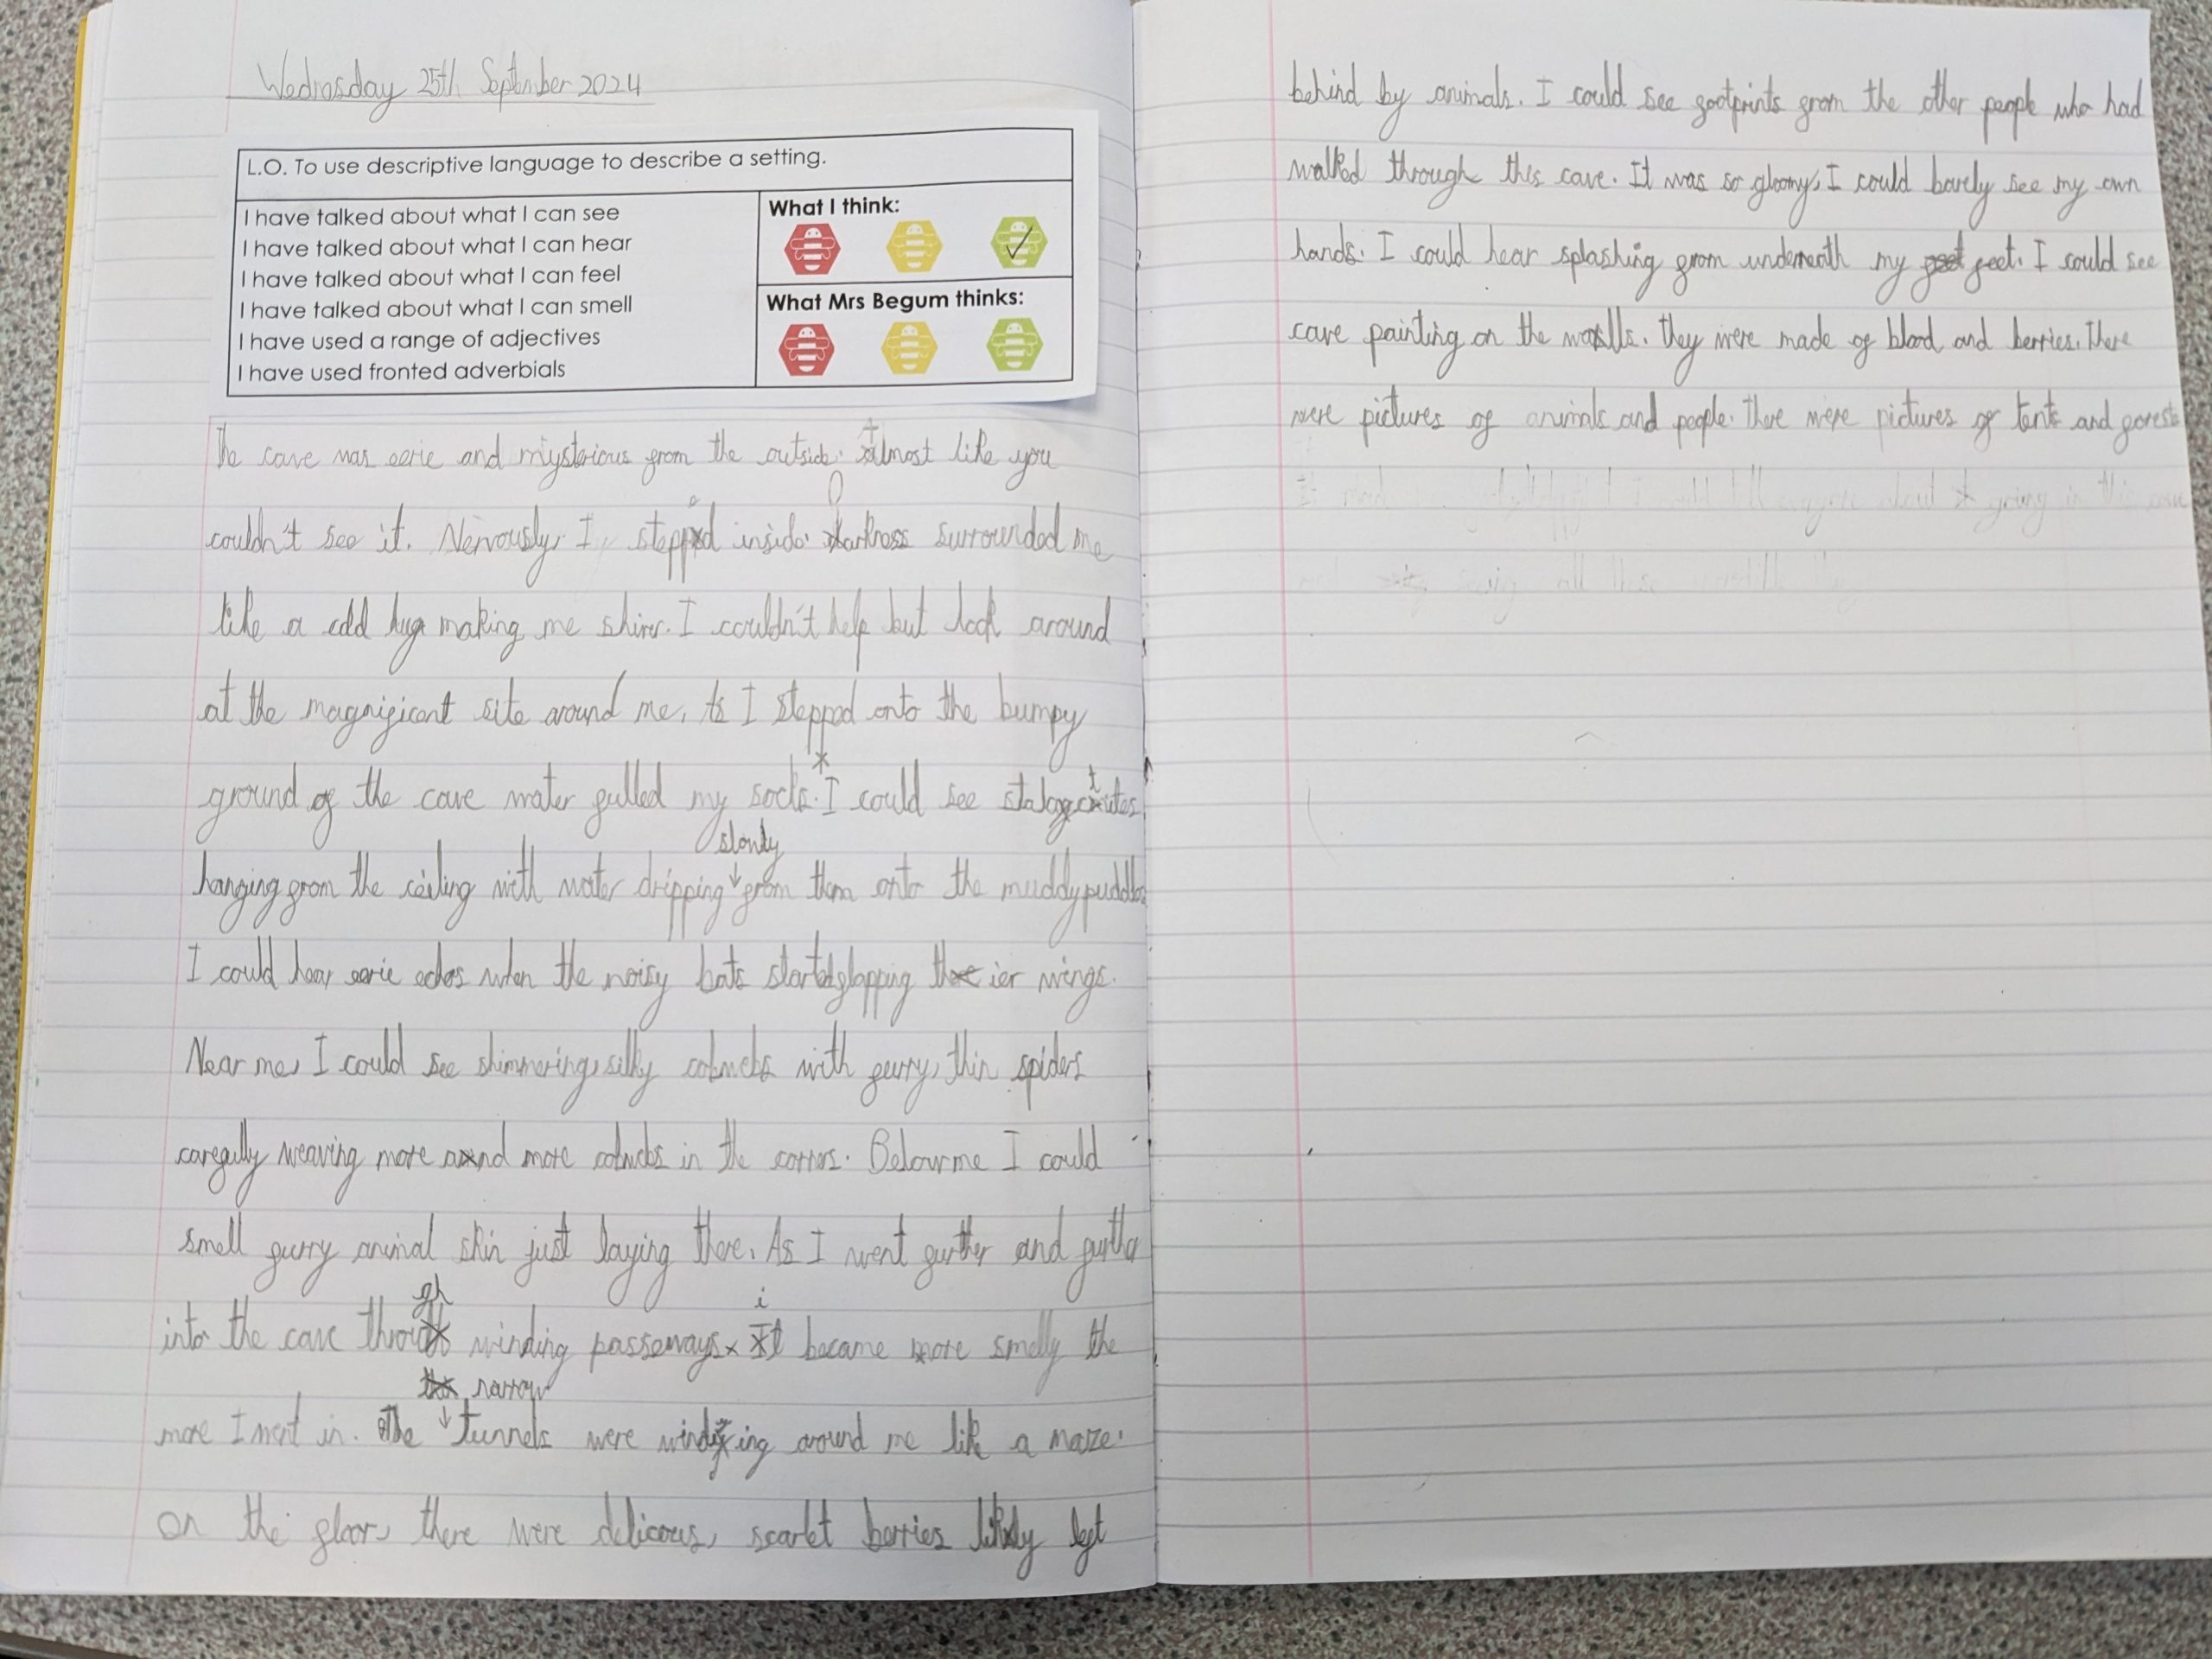 Wednesday 25th September 2024
L.O. To use descriptive language to describe a setting.
I have talked about what I can see
I have talked about what I can hear
I have talked about what I can feel
I have talked about what I can smell
I have used a range of adjectives
I have used fronted adverbials
What I think:
What Mrs Begum thinks:
The cave was eerie and mysterious from the outside. almost like you
couldn't see it. Nervously, I stepped inside. Darkness surrounded me
like a cold hug making me shiver. I couldn't help but look around
at the magnificant site around me. As I stepped onto the bumpy
ground of the cave water filled my socks. I could see
hanging from the ceiling with water dripping slowly from them onto the muddy puddles
I could hear eerie echos when the noisy bats started flapping thier wings.
Near me, I could see shimmering, silky cobwebs with furry, thin spiders
carefully weaving more and more cobwebs in the corners. Below me I could
smell furry animal skin just laying there. As I went further and further
into the cave through winding passeways it became more smelly the
more I went in. The narrow tunnels were winding around me like a maze.
On the floor, there were delicous, scarlet berries likely left
behind by animals. I could see footprints from the other people who had
walked through this cave. It was so gloomy, I could barely see my own
hands. I could hear splashing from underneath my feet. I could see
cave painting on the walls. they were made of blood and berries. There
were pictures of animals and people. There were pictures of tents and forests